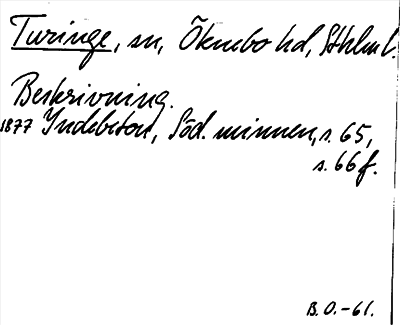 Turinge, sn, Öknebo hd, Sthlm l.
Beskrivning.
1877 Indebetou, Söd. minnen, s. 65,
s. 66 f.
B.O.-61.